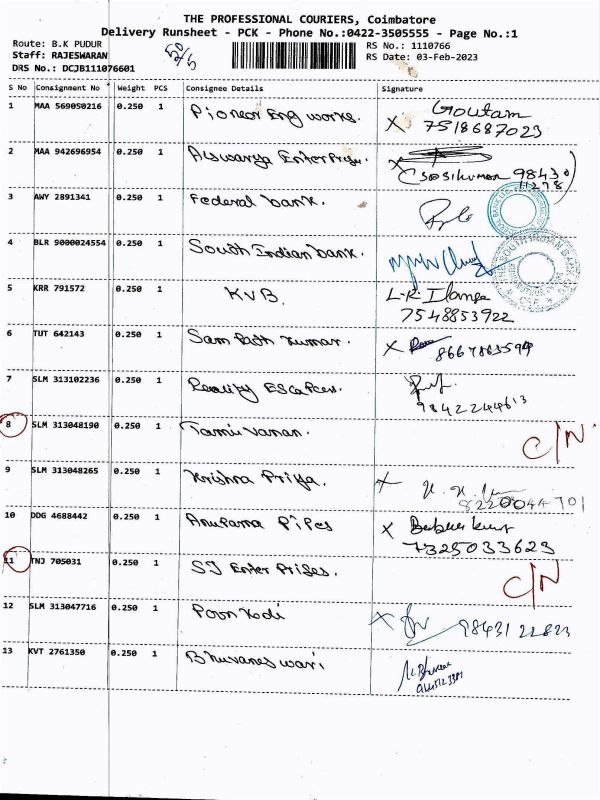 THE PROFESSIONAL COURIERS, Coimbatore
Delivery Runsheet - PCK - Phone No.:0422-3505555 - Page No.:1
Route: B.K PUDUR
Staff: RAJESWARAN
DRS No.: DCJB111076601
RS No.: 1110766
RS Date: 03-Feb-2023
S No Consignment No Weight PCS Consignee Details Signature
1 MAA 569050216 0.250 1 Pioneer Eng works. X Goutam
7518687023
2 MAA 942696954 0.250 1 Aiswarya Enterprise. X
98430
11278
3 AWY 2891341 0.250 1 Federal bank.
4 BLR 9000024554 0.250 1 South Indian bank.
SOUTH INDIAN BANK
5 KRR 791572 0.250 1 KVB. L.R Ilango
7548853922
6 TUT 642143 0.250 1 Sampath kumar. X
7 SLM 313102236 0.250 1 Reality Escapes.
9842244613
8 SLM 313048190 0.250 1 Tamil vanan. C/N
9 SLM 313048265 0.250 1 Krishna Priya. X
8220044701
10 DDG 4688442 0.250 1 Anupama Pipes X
7325033623
11 TNJ 705031 0.250 1 SJ Enter Prises. C/N
12 SLM 313047716 0.250 1 Poonkodi X
9843122823
13 KVT 2761350 0.250 1 Bhuvaneswari